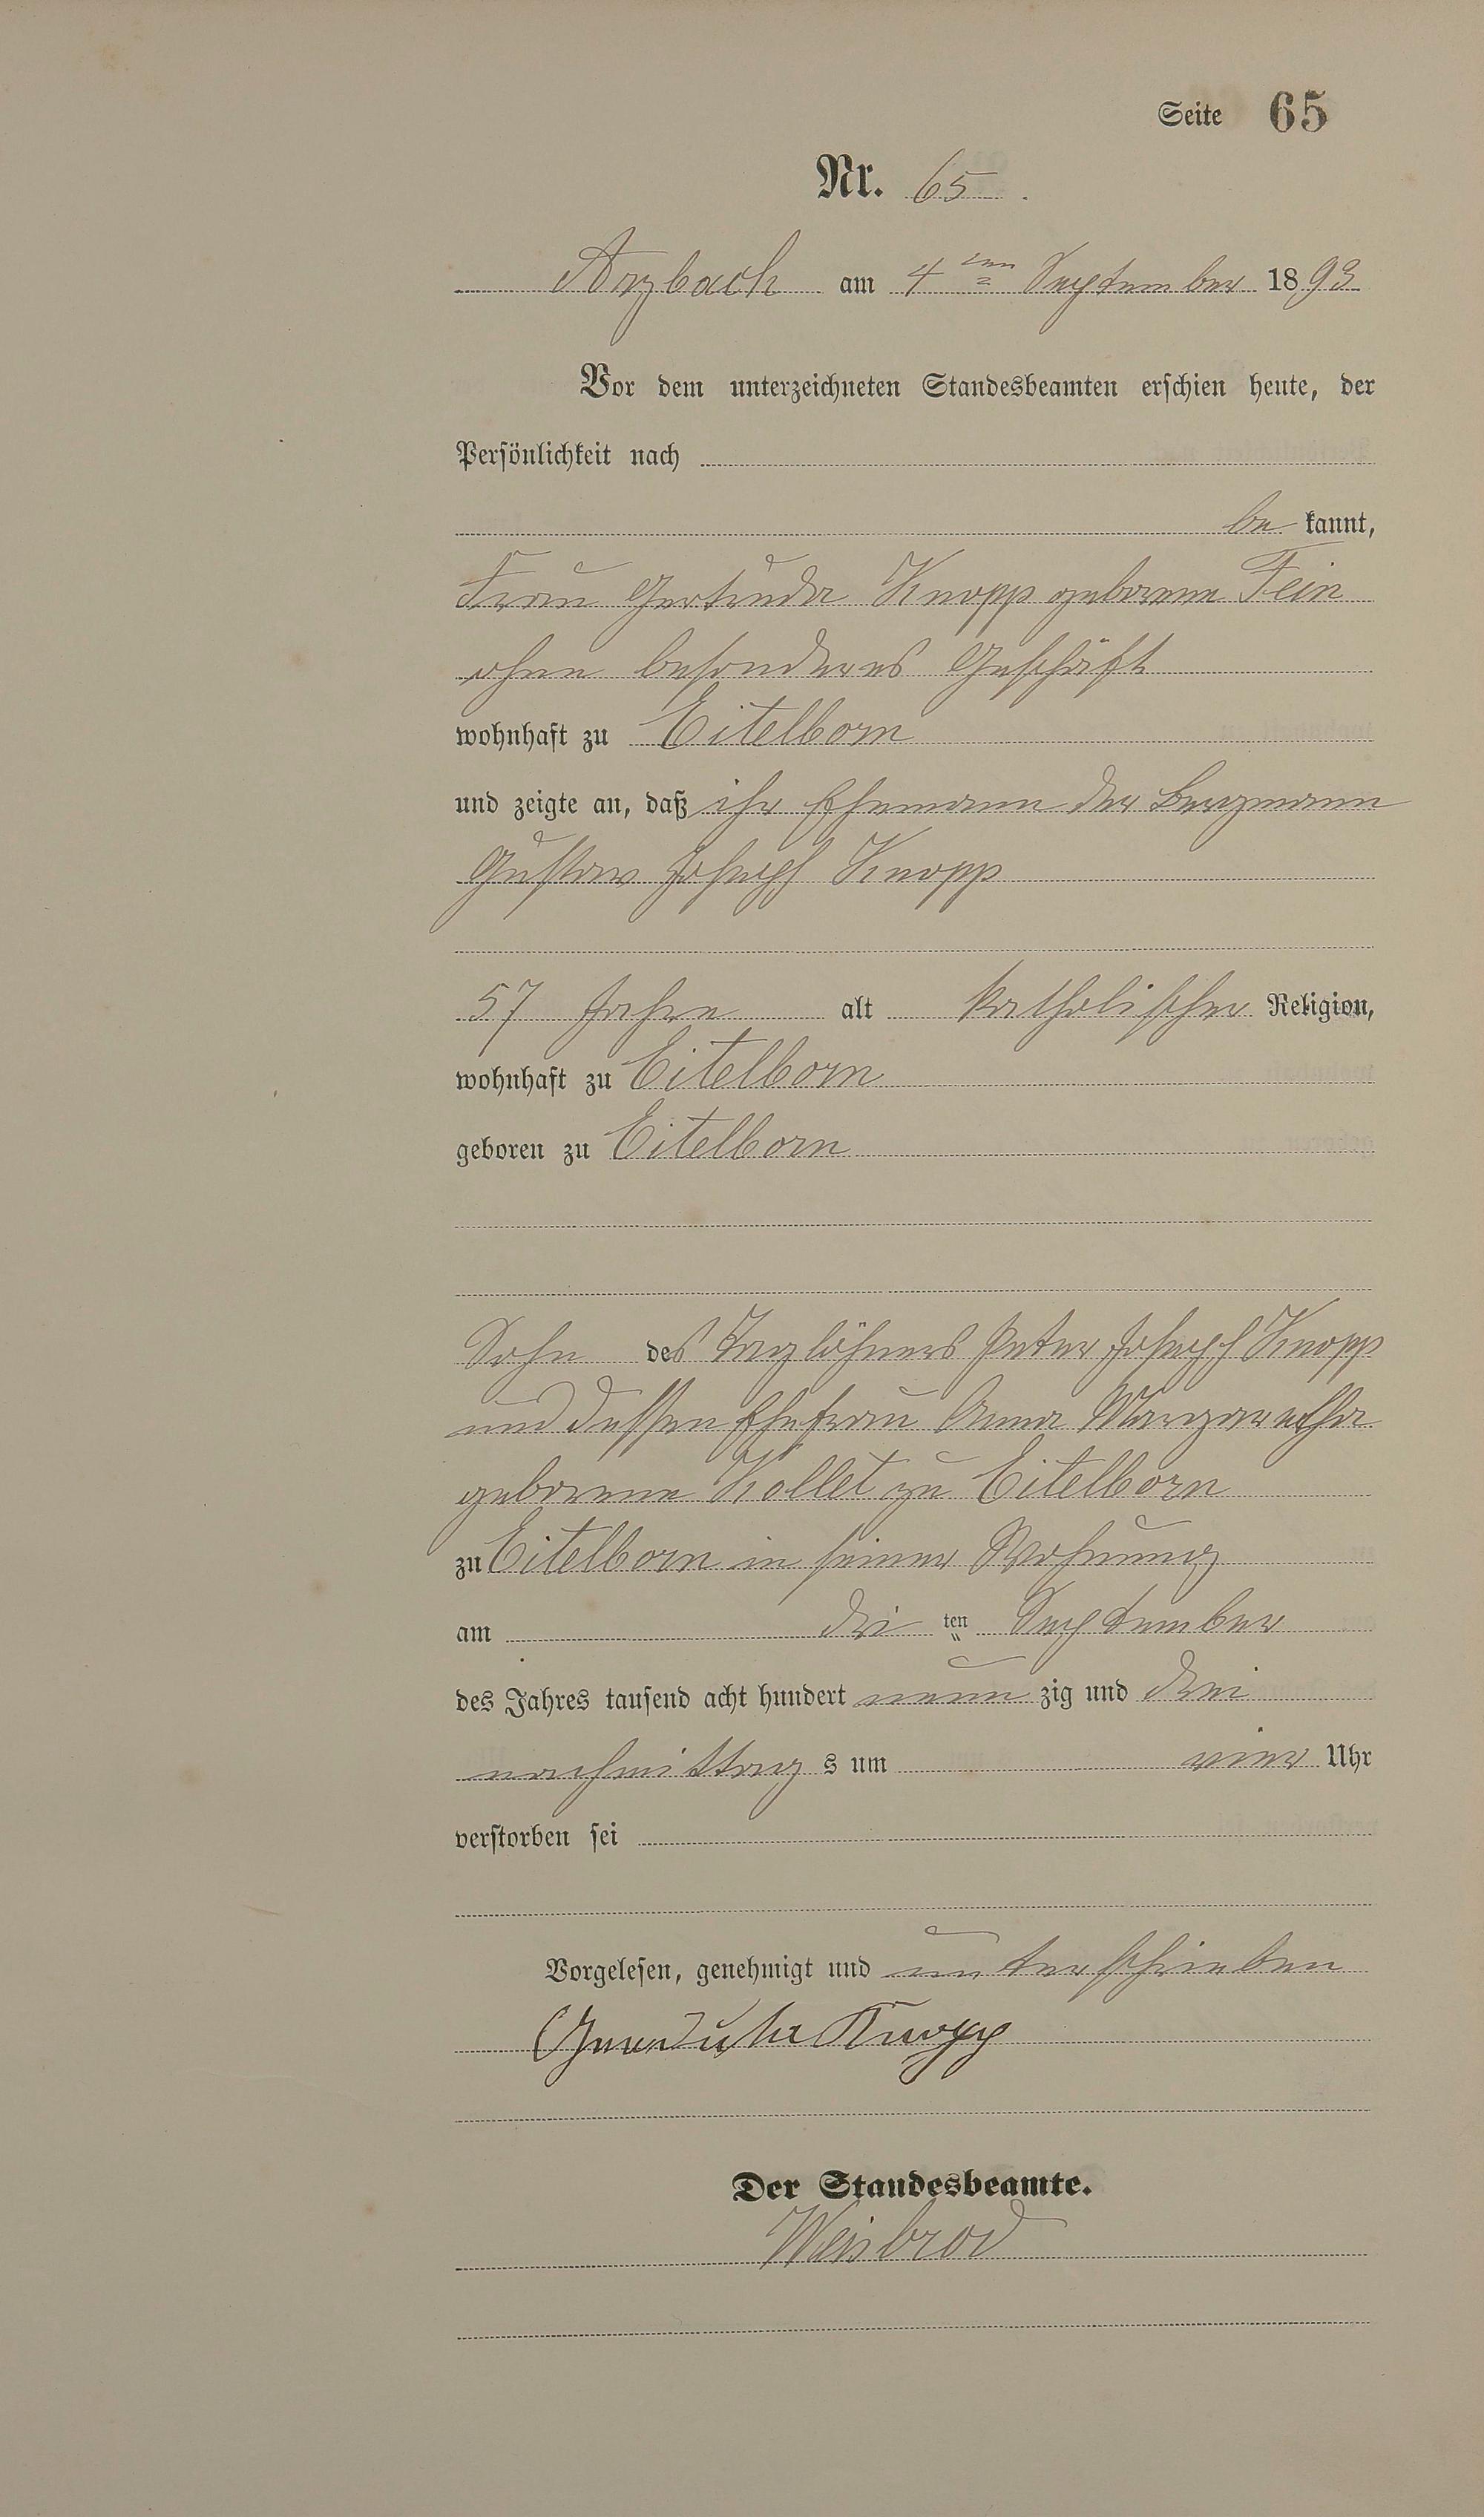 Seite 65
Nr. 65.
Arzbach am 4ten September 1893
Vor dem unterzeichneten Standesbeamten erschien heute, der
Persönlichkeit nach
be kannt,
Frau Gertruda Knopp geborene Fein
ohne besonderes Geschäft
wohnhaft zu Eitelborn
und zeigte an, daß ihr Ehemann der Bergmann
Gustav Joseph Knopp
57 Jahre alt katholischer Religion,
wohnhaft zu Eitelborn
geboren zu Eitelborn
Sohn des Taglöhners Peter Joseph Knopp
und dessen Ehefrau Anna Margaretha
geborene Kollet zu Eitelborn
zu Eitelborn in seiner Wohnung
am dri ten September
des Jahres tausend acht hundert neun zig und drei
nachmittag s um vier Uhr
verstorben sei
Vorgelesen, genehmigt und unterschrieben
Knopp
Der Standesbeamte.
Weisbrod